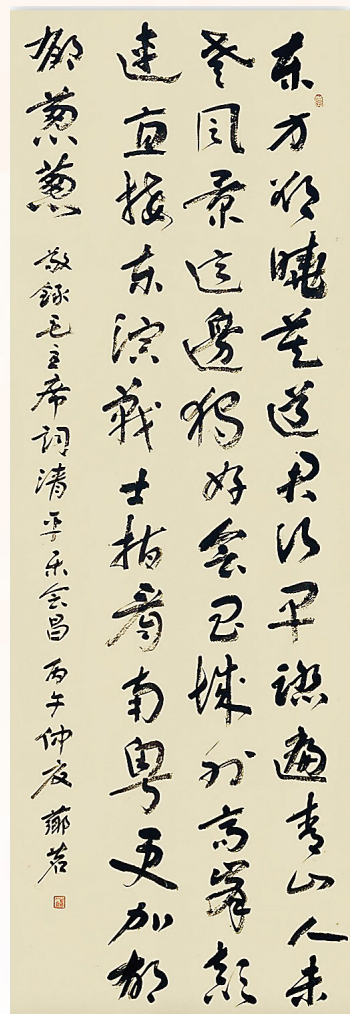 东方欲曉莫道君行早踏遍青山人未
老风景这邊独好会昌城外高峯颠
连直接东溟戰士指看南粤更加郁
郁葱葱 敬録毛主席詞清平乐会昌 丙午仲夏